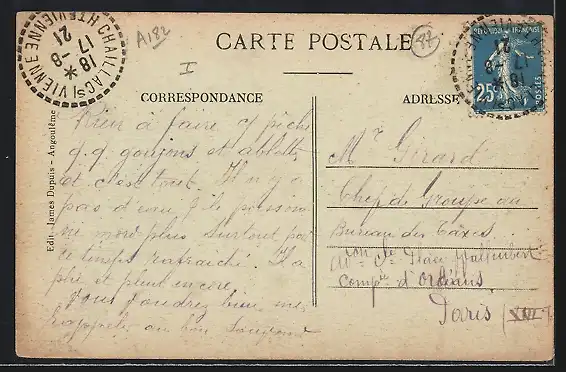 CHAILLAC SI VIENNE HTE VIENNE
18 - 8
17
21
A182
I
87
CARTE POSTALE
RÉPUBLIQUE FRANÇAISE
25c
POSTES
CORRESPONDANCE
ADRESSE
Edit. James Dupuis - Angoulême
Rien à faire, g pêche
q.q. goujons et ablettes
et c'est tout. Il n'y a
pas d'eau, & le poisson
ne mord plus surtout par
le temps rafraichi. Il a
plu et pleut encore.
Vous voudrez bien me
rappeler au bon Souvenir
Mr Girard
Chef de Groupe au
Bureau des Taxes
Place Valhubert
Compie d'Orléans
Paris (XIII